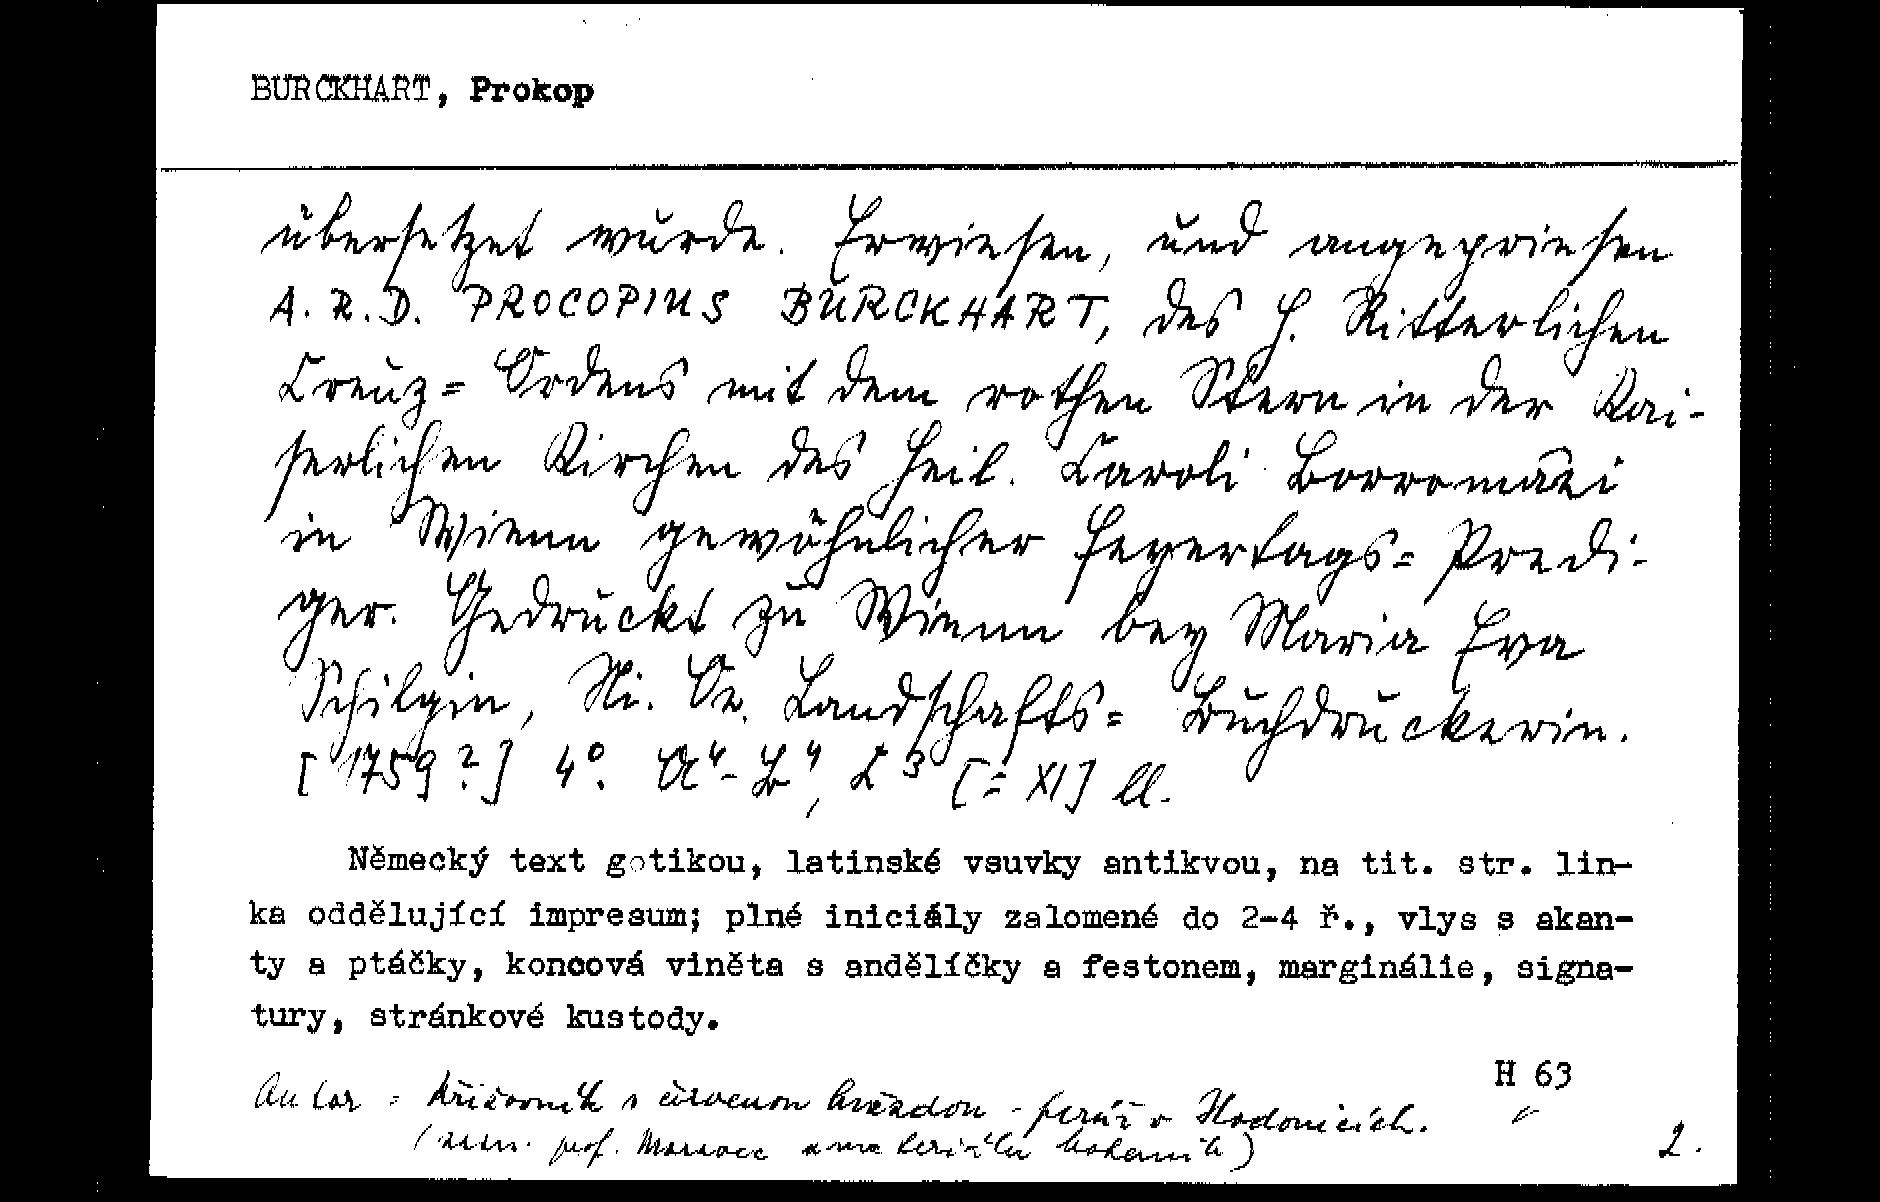 BURCKHART, Prokop
übersetzet wurde. Erwiesen, und angepriesen
A. R. D. PROCOPIUS BURCKHART, des H. Ritterlichen
Creuz= Ordens mit dem rothen Stern in der Kai-
serlichen Kirchen des Heil. Caroli Borromaei
in Wienn gewöhnlicher Feyertags= Predi-
ger. Gedruckt zu Wienn bey Maria Eva
Schilgin, Ni. Oe. Landschafts= Buchdruckerin.
[1759?] 4°. A⁴-B⁴, C³ [= XI] ll.
Německý text gotikou, latinské vsuvky antikvou, na tit. str. lin-
ka oddělující impresum; plné iniciály zalomené do 2-4 ř., vlys s akan-
ty a ptáčky, koncová viněta s andělíčky a festonem, marginálie, signa-
tury, stránkové kustody.
H 63
Autor = křižovník s červenou hvězdou - farář v Hodonicích.
prof.
2.